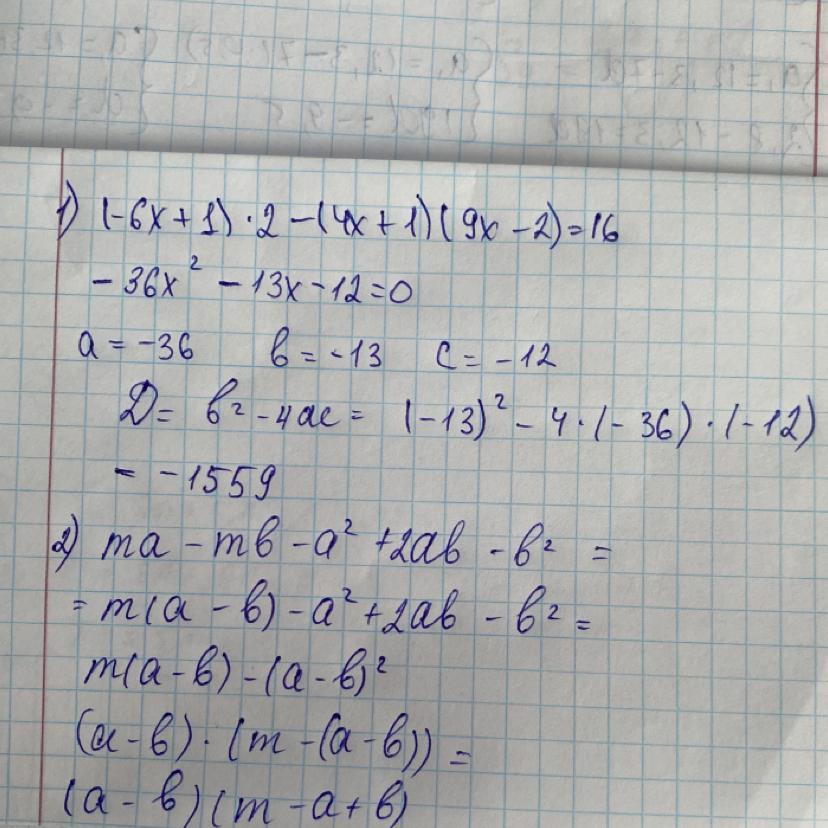 1) (-6x+1)·2-(4x+1)(9x-2)=16
-36x² -13x-12=0
a=-36 в=-13 c=-12
D= в²-4ac= (-13)²-4·(-36)·(-12)
= -1559
2) ma-mв-a²+2aв-в² =
=m(a-в)-a²+2aв-в²=
m(a-в)-(a-в)²
(a-в)·(m-(a-в))=
(a-в)(m-a+в)